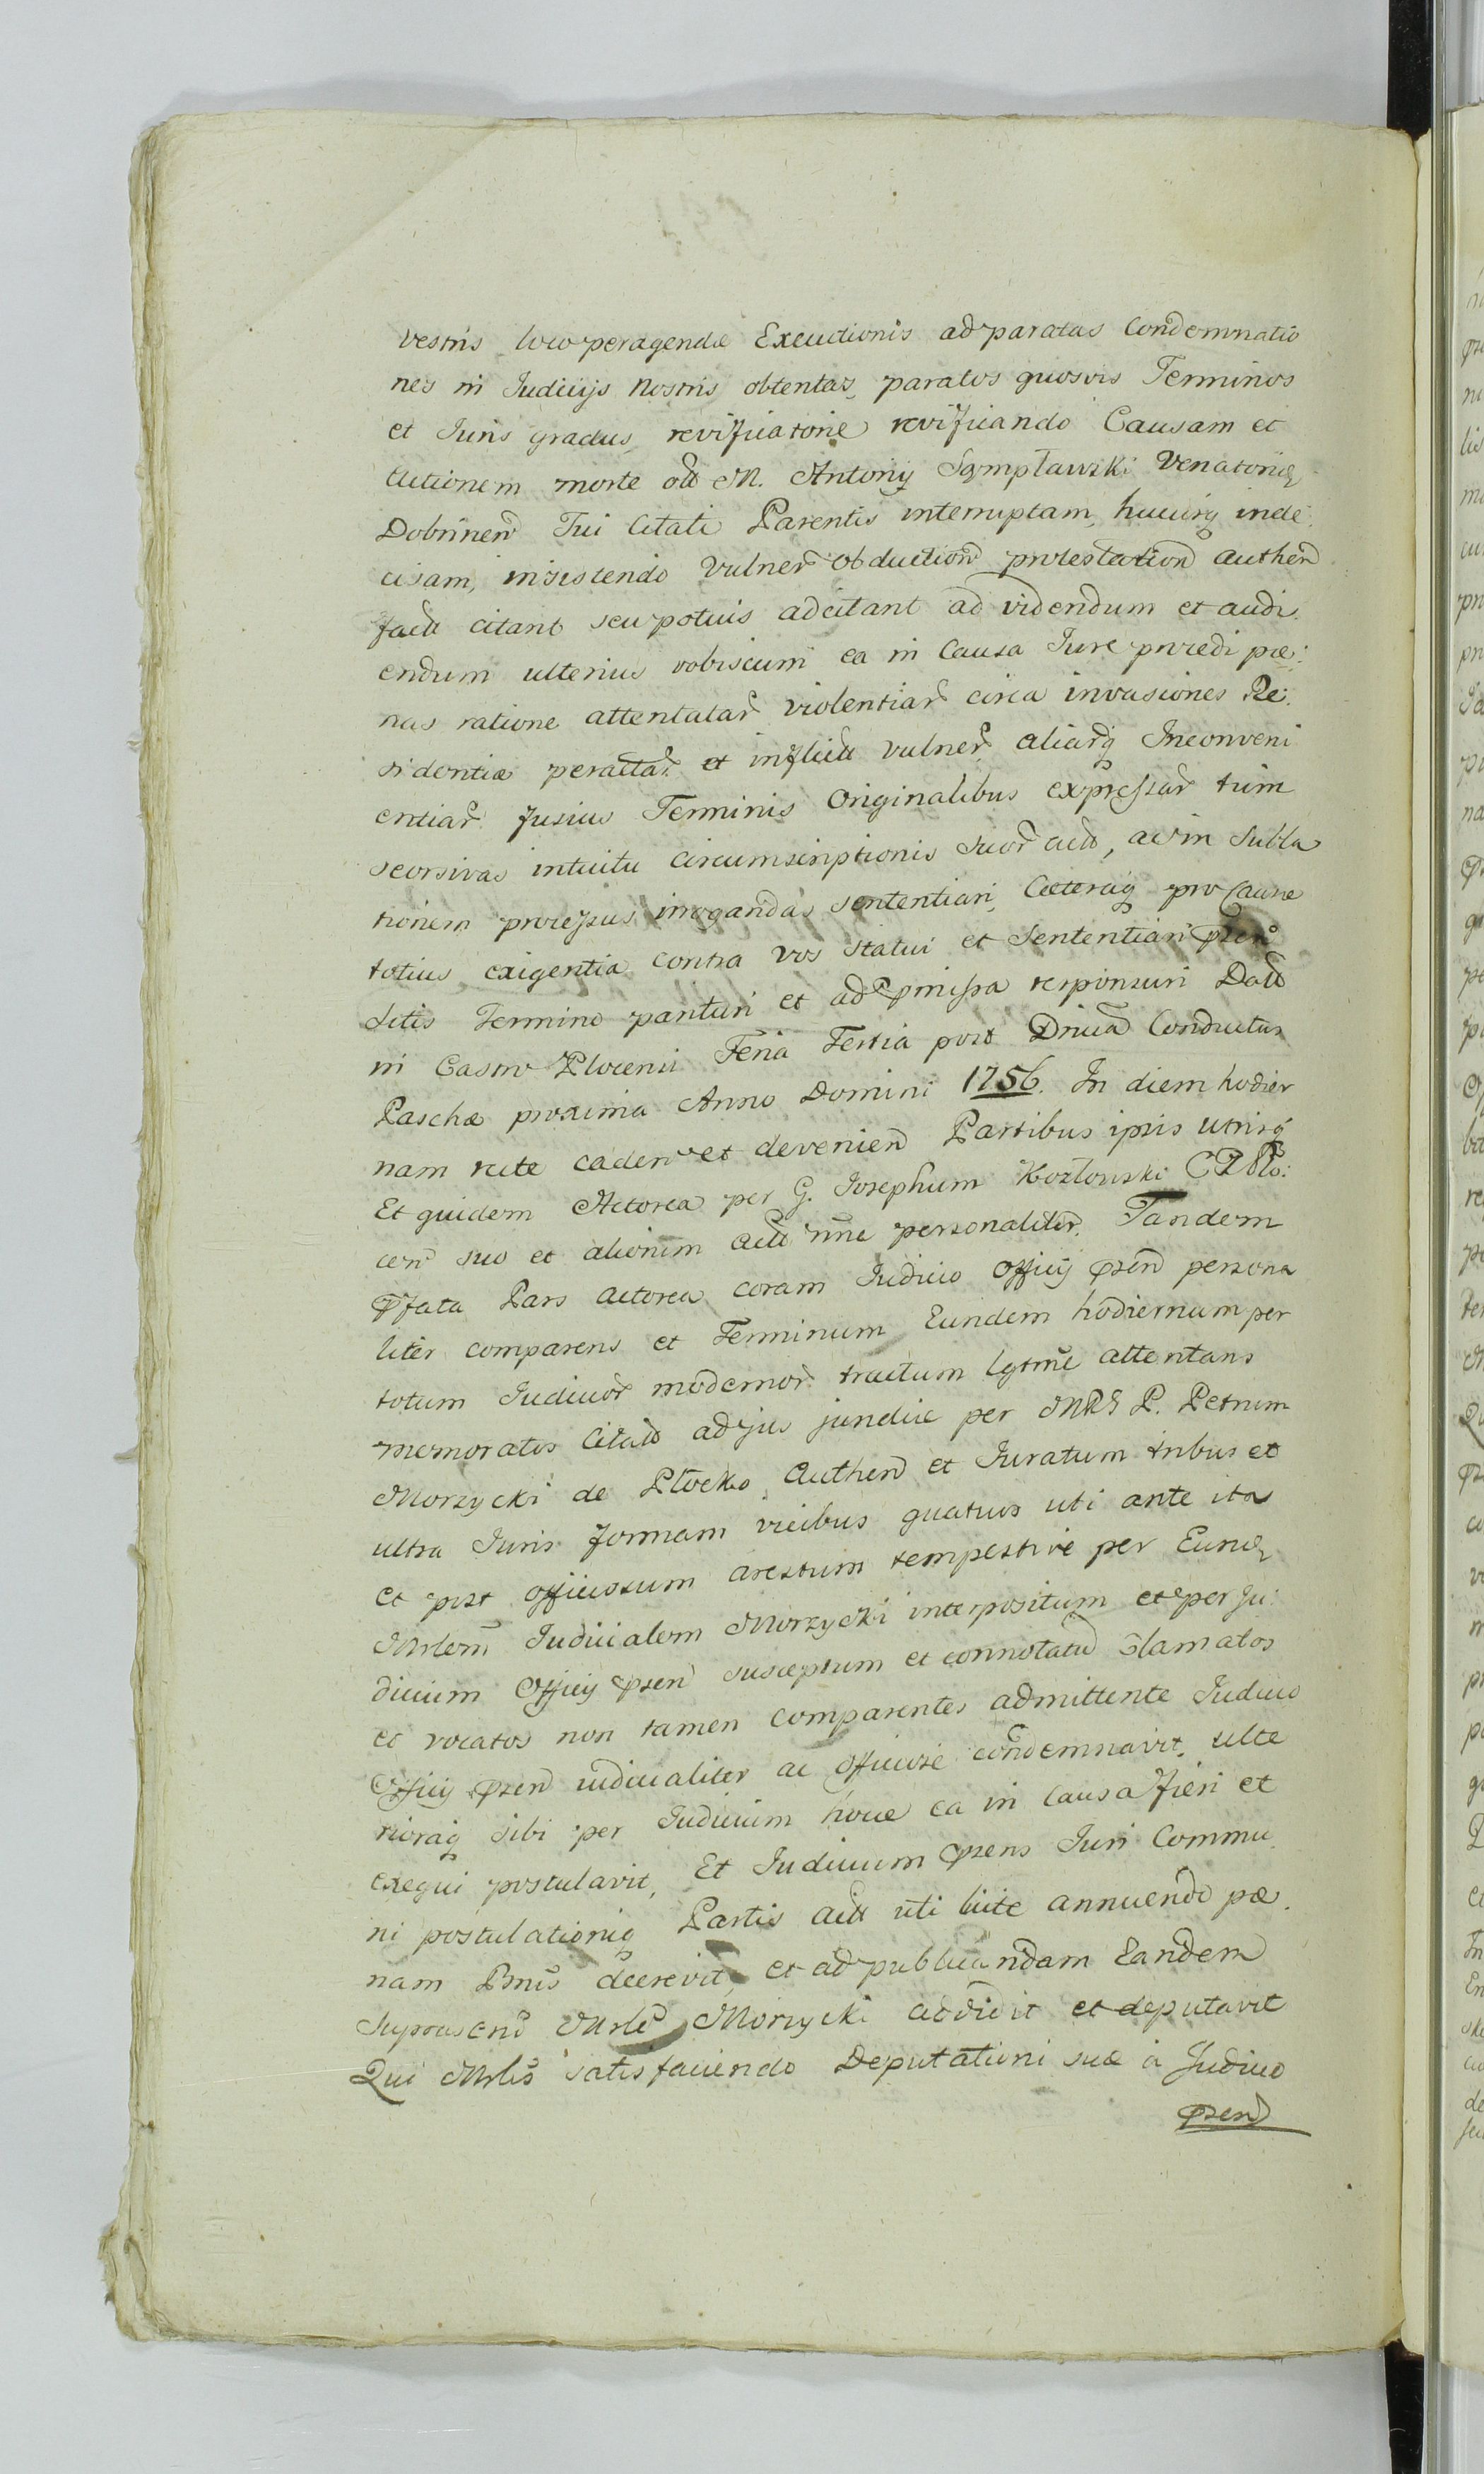 vestris loco peragendæ Executionis ad paratas Condemnatio
nes in Judicijs Nostris obtentas, paratos quosvis Terminos
et Juris gradus, revificatorie revificando Causam et
Actionem morte olt M. Antonij Sempławski Venatoriȝ
Dobrinen Tui Citati Parentis interruptam, hucusq inde
cisam, insistendo Vulner obduction protestation authen
fact citant seu potius adcitant ad videndum et audi
endum ulterius vobiscum ea in Causa Jure procedi pæ:
nas ratione attentatar violentiar circa invasiones Re:
sidentiæ peractar et inflict vulner, aliarq Inconveni
entiar fusius Terminis Originalibus expressar tum
seorsivas intuitu circumscriptionis suor act, ac in Subla
tionem processus irrogandas sententiari, Cæteraq pro Causæ
totius exigentia contra vos statui et Sententiari
sitis Termino parituri et ad pmissa responsuri Datt
in Castro Plocensi Feria Tertia post Dnica Conductus
Paschæ proxima Anno Domini 1756. In diem hodier
nam rite caden et devenien Partibus ipsis utrisq
Et quidem Actorea per G. Josephum Kozłowski
cen suo et aliorum act nne personaliter. Tandem
pfata Pars actorea coram Judicio Officij psen persona
liter comparens et Terminum Eundem hodiernum per
totum Judicior modernor tractum lgtme attentans
memoratos Citatos ad jus juridice per P. Petrum
Morzycki de Płocko, Authen et Juratum tribus et
ultra Juris formam vicibus quatuor uti ante ita
et post officiosum arestum tempestive per Eunȝ
Mrlem Judicialem Morzycki interpositum et per Ju:
dicium Officij psen susceptum et connotatu clamatos
et vocatos non tamen comparentes admittente Judicio
Officij psen iudicialiter ac officiose condemnavit, ulte
rioraq sibi per Judicium hocce ea in causa fieri et
exequi postulavit, Et Judicium psens Juri Commu
ni postulationiq Partis act uti licite annuendo pæ
nam decrevit, et ad publicandam Eandem
suprascri Mrle Morzycki addidit et deputavit
Qui Mrlis satisfaciendo Deputationi suæ a Judicio
psen